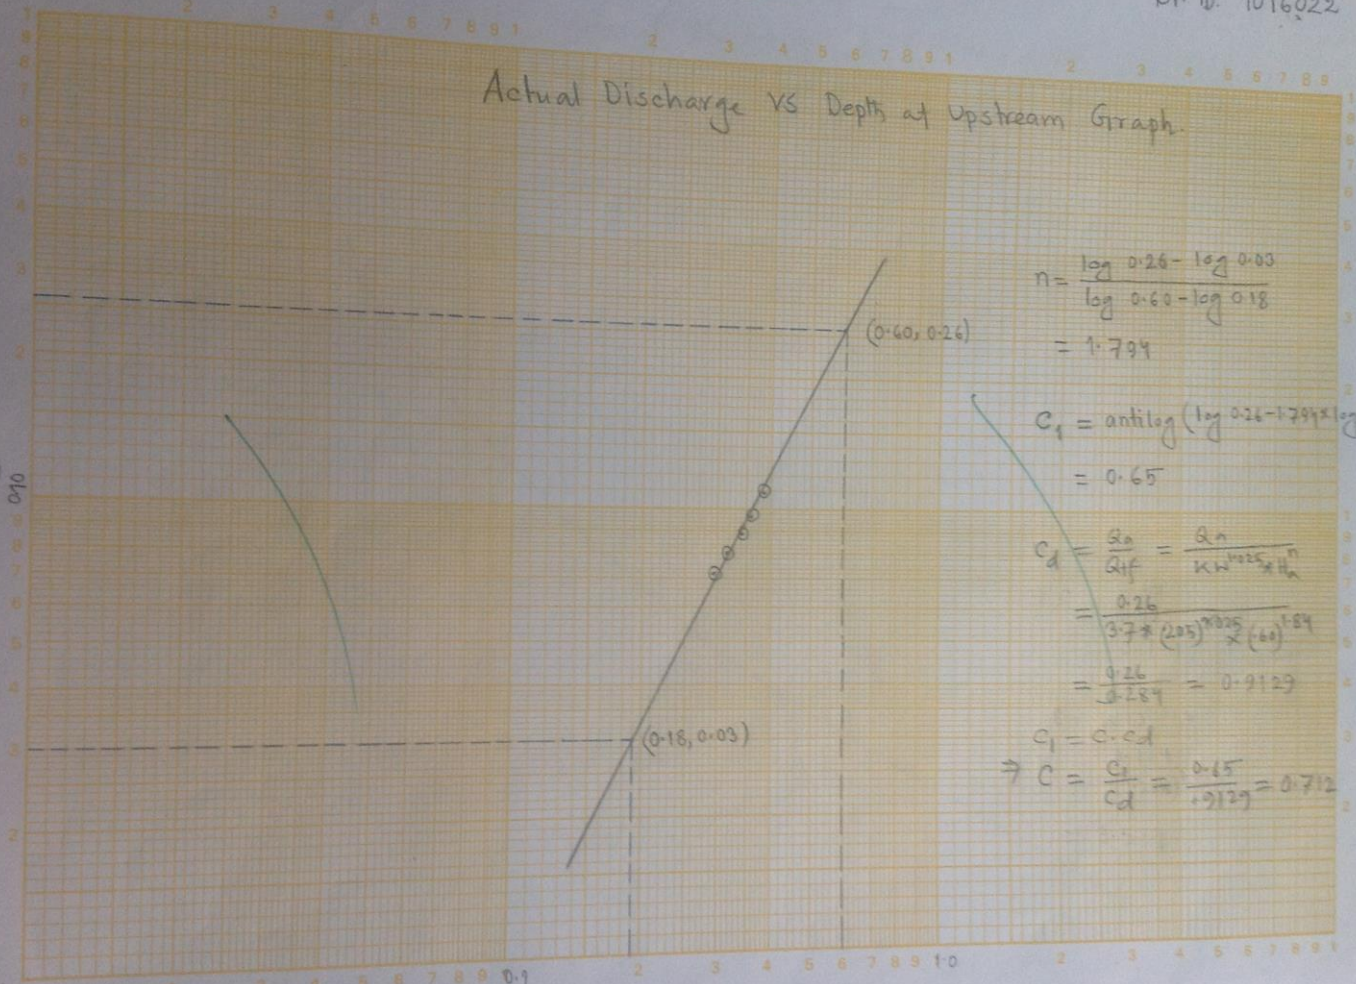 1016022
Actual Discharge VS Depth at Upstream Graph.
n = log 0.26 - log 0.03 / log 0.60 - log 0.18
= 1.794
(0.60, 0.26)
C₁ = antilog (log 0.26 - 1.794 × log
= 0.65
0.10
Cd = Qa / Qtf = Qa / KW^1.025 × Ha^n
= 0.26 / 3.7 × (.205)^1.025 × (.60)^1.84
= 0.26 / 0.284 = 0.9129
(0.18, 0.03)
C₁ = C.Cd
⇒ C = C₁ / Cd = 0.65 / .9129 = 0.712
0.1
1.0